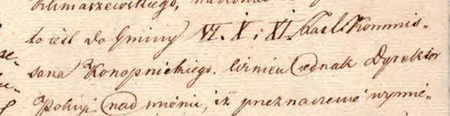 to iest do Gminy VI. X i XI. Kommis-
sarza Konopnickiego. Winien iednak Dyrektor
Policyi nadmienić, iż przeznaczenie wymie-